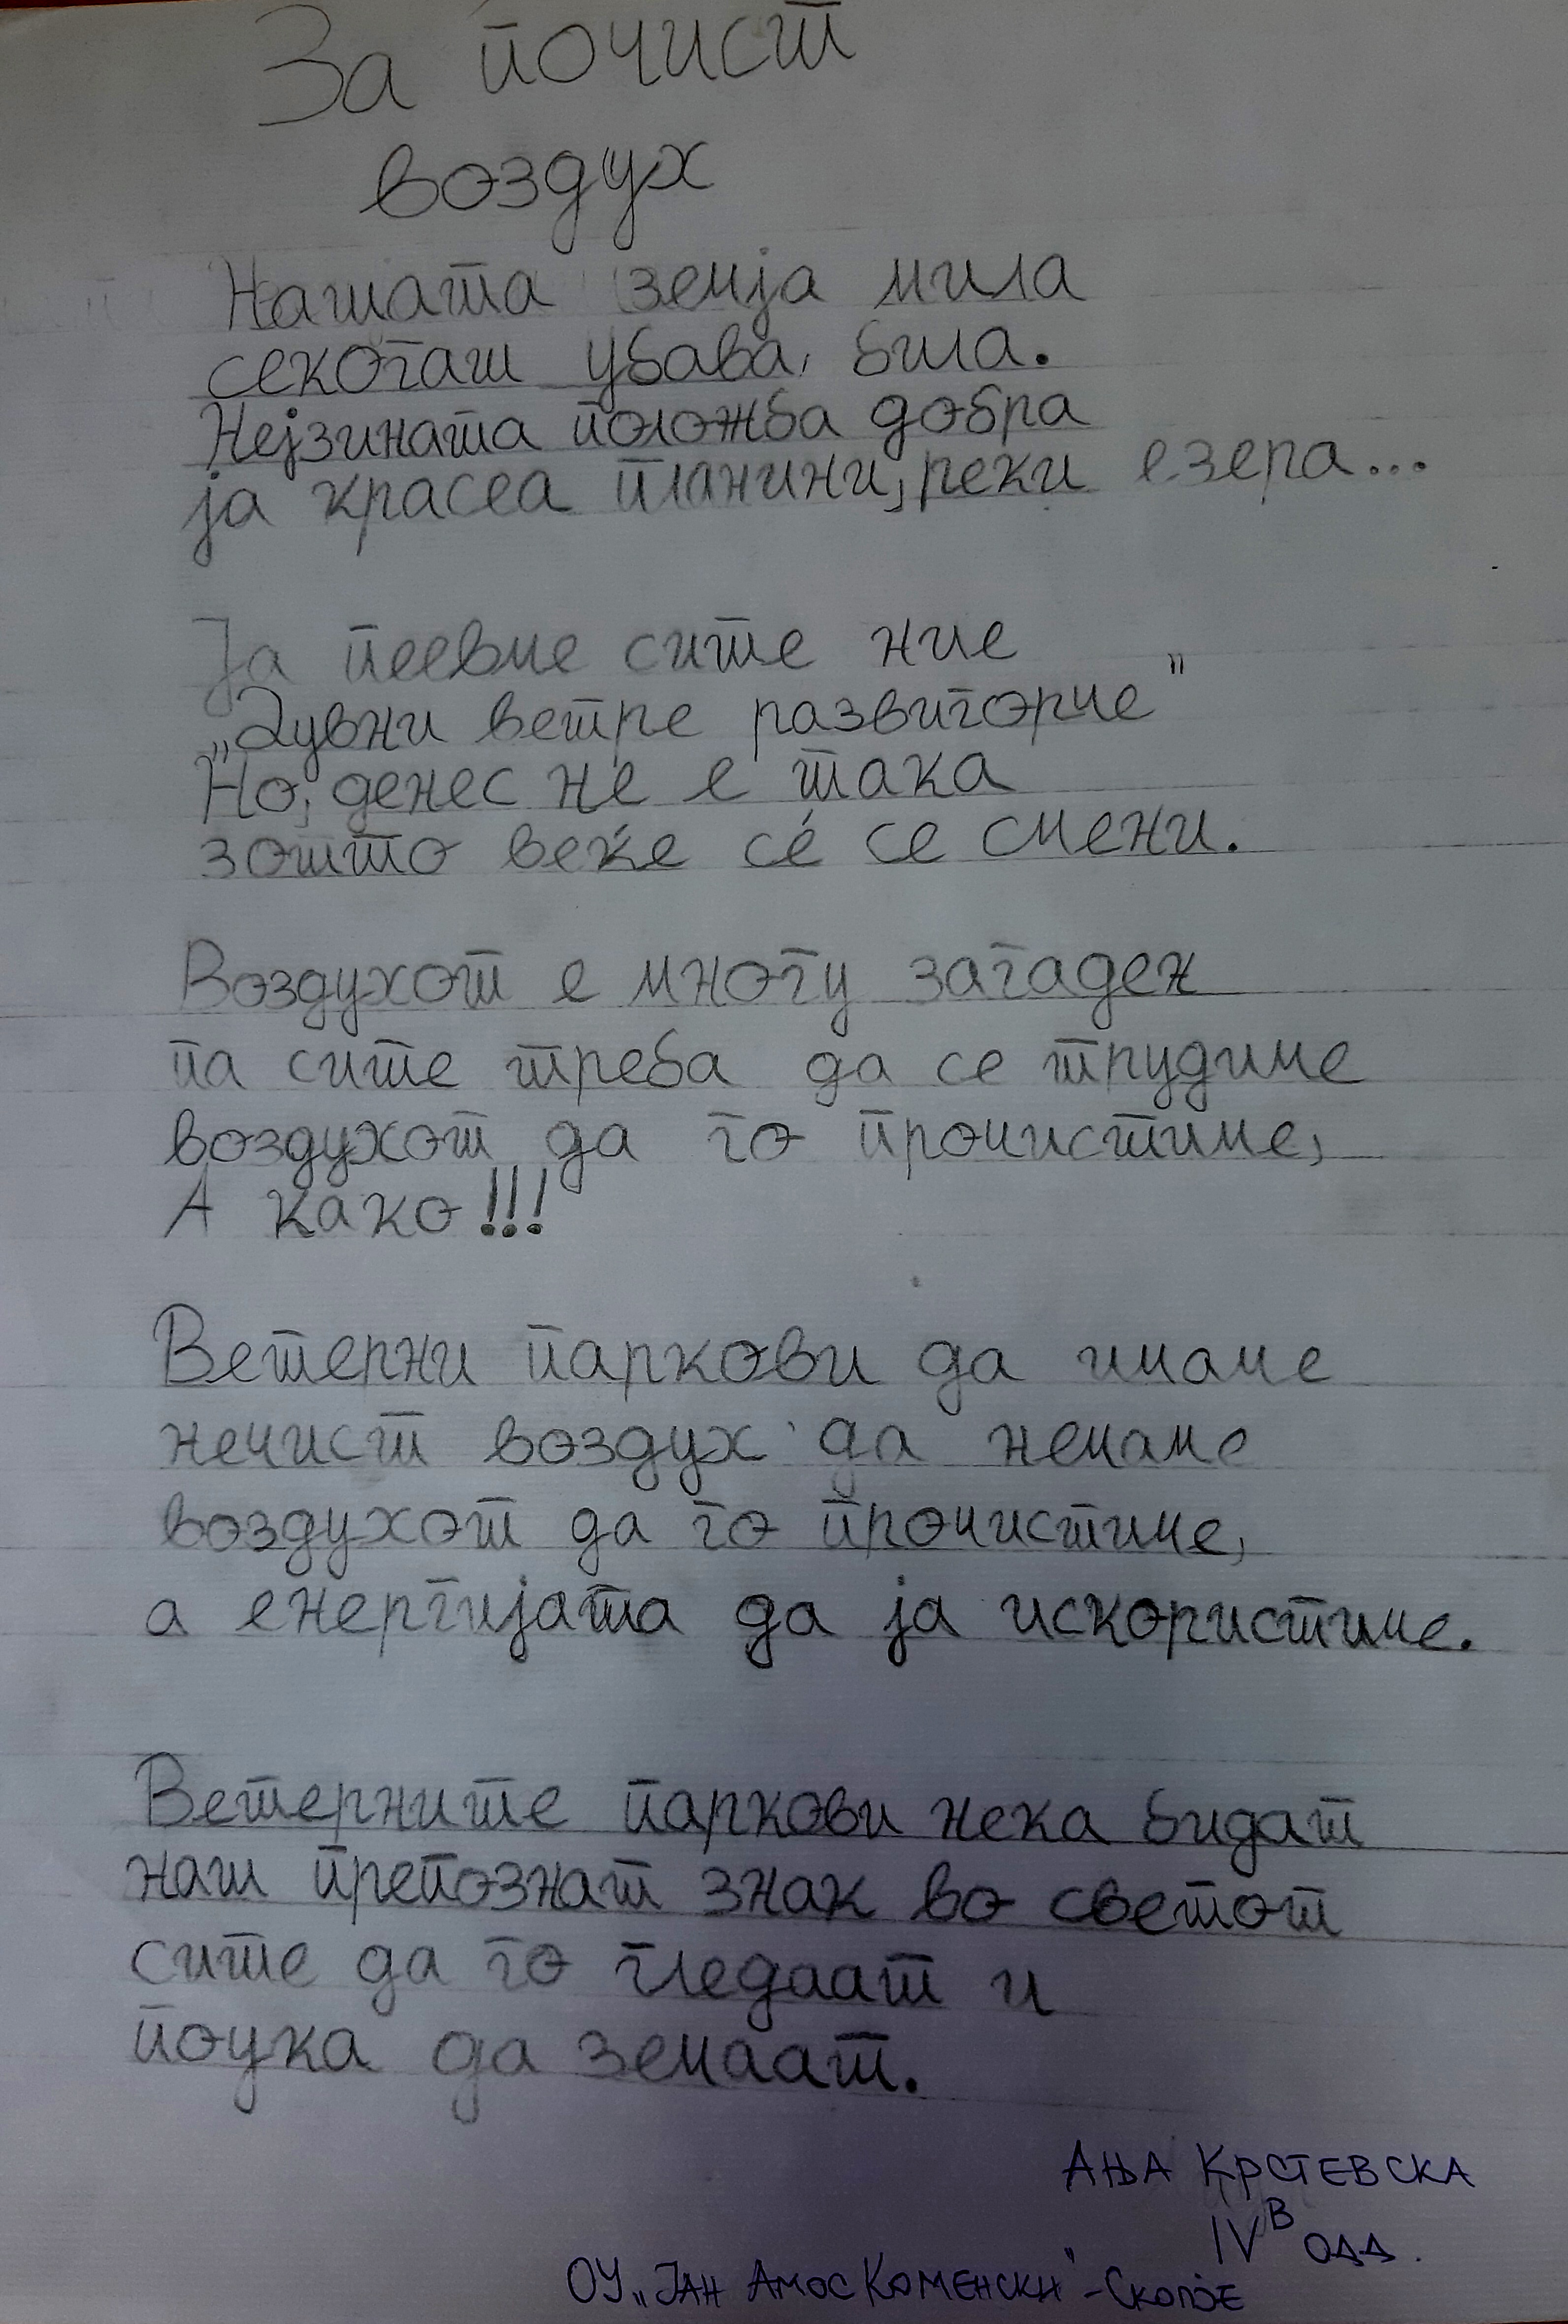 За почист
воздух
Нашата земја мила
секогаш убава, била.
Нејзината положба добра
ја красеа планини, реки езера...
Ја пеевме сите ние
„Дувни ветре развигорче"
Но, денес не е така
зошто веќе сé се смени.
Воздухот е многу загаден
па сите треба да се трудиме
воздухот да го прочистиме,
А како!!!
Ветерни паркови да имаме
нечист воздух да немаме
воздухот да го прочистиме,
а енергијата да ја искористиме.
Ветерните паркови нека бидат
наш препознат знак во светот
сите да го гледаат и
поука да земаат.
Ања Крстевска
IV В одд.
ОУ „Јан Амос Коменски" - Скопје